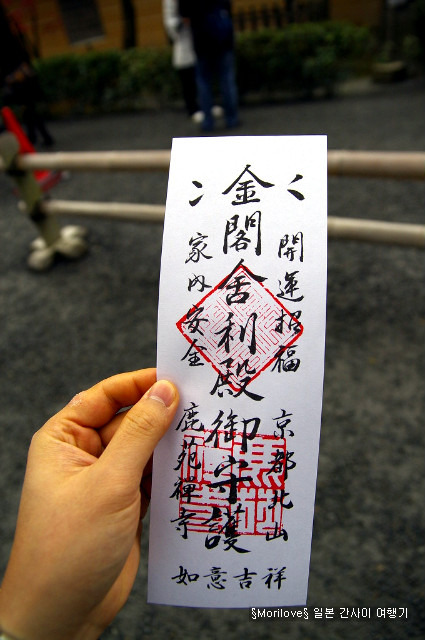 開運招福
京都北山
金閣舍利殿御守護
家内安全
鹿苑禅寺
如意吉祥
§Morilove§ 일본 간사이 여행기